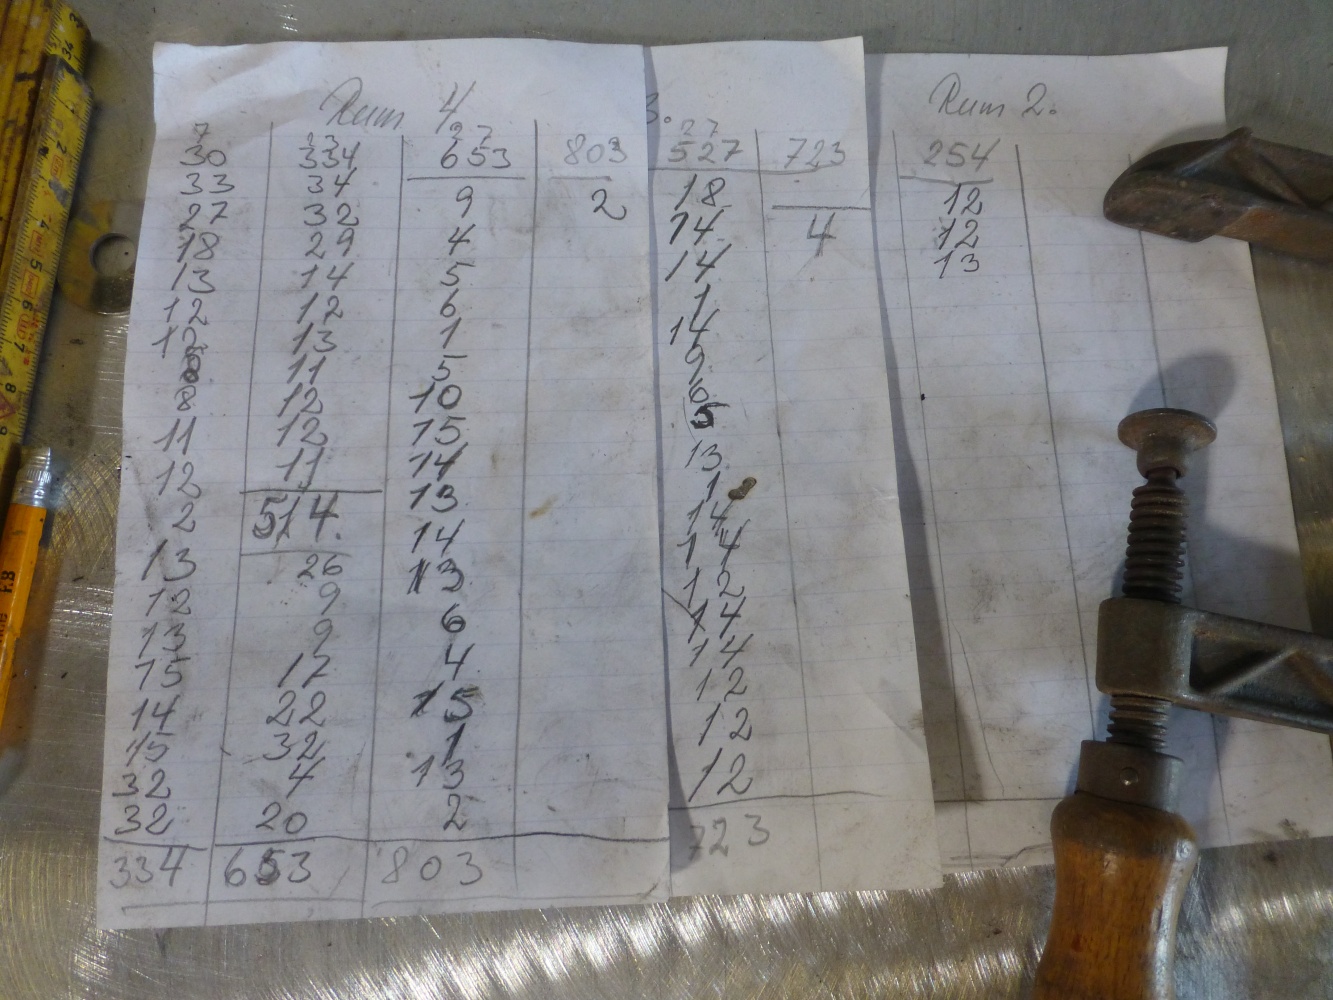 Rum 4
7
30
33
27
18
13
12
12
8
8
11
12
2
13
12
13
15
14
15
32
32
334
23
334
34
32
29
14
12
13
11
12
12
11
514.
26
9
9
12
22
32
4
20
653
27
653
9
4
5
6
1
5
10
15
14
13
14
13
6
4
15
1
13
2
803
803
2
3.
27
527
18
14
14
1
14
9
6
5
13
1
14
14
12
14
14
12
12
12
723
723
4
Rum 2.
254
12
12
13